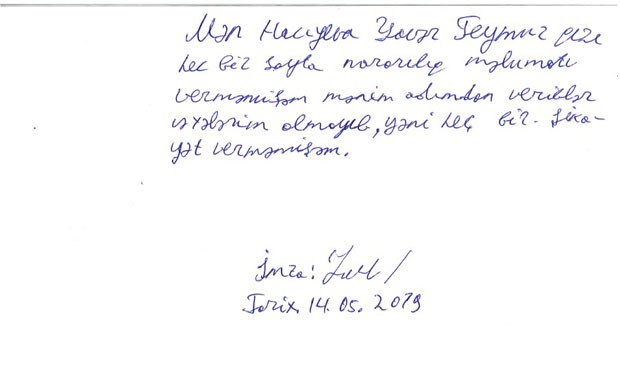 Mən Hacıyeva Yavər Teymur qızı
heç bir sayta narazılıq məlumatı
verməmişəm mənim adımdan verilər
xəbərim olmayıb, yəni heç bir şika-
yət verməmişəm.
İmza:
Tarix 14.05.2019